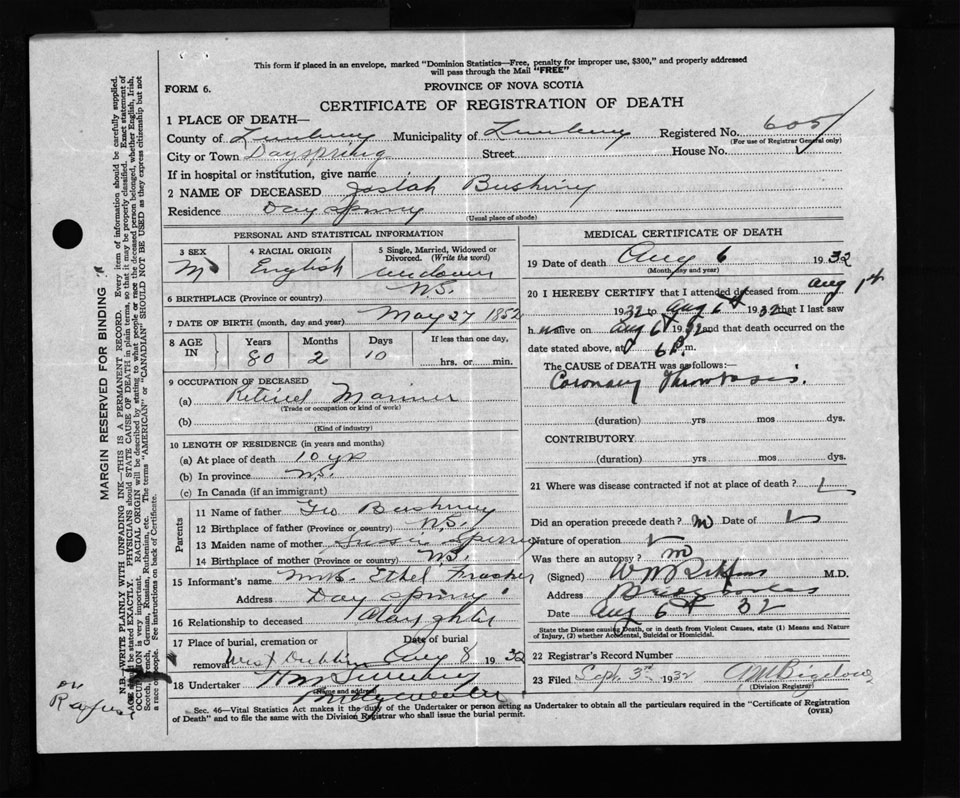 This form if placed in an envelope, marked "Dominion Statistics—Free, penalty for improper use, $300," and properly addressed
will pass through the Mail "FREE"
FORM 6.
PROVINCE OF NOVA SCOTIA
CERTIFICATE OF REGISTRATION OF DEATH
1 PLACE OF DEATH—
County of Lunenburg Municipality of Lunenburg Registered No. 605
(For use of Registrar General only)
City or Town Dayspring Street House No.
If in hospital or institution, give name
2 NAME OF DECEASED Josiah
Residence Dayspring
(Usual place of abode)
PERSONAL AND STATISTICAL INFORMATION
3 SEX 4 RACIAL ORIGIN 5 Single, Married, Widowed or
Divorced. (Write the word)
M English widower
6 BIRTHPLACE (Province or country) N.S.
7 DATE OF BIRTH (month, day and year) May 27 1852
8 AGE IN Years Months Days If less than one day,
80 2 10 hrs. or min.
9 OCCUPATION OF DECEASED
(a) Retired Mariner
(Trade or occupation or kind of work)
(b)
(Kind of industry)
10 LENGTH OF RESIDENCE (in years and months)
(a) At place of death 10 yrs
(b) In province N.S.
(c) In Canada (if an immigrant)
Parents
11 Name of father Geo
12 Birthplace of father (Province or country) N.S.
13 Maiden name of mother
14 Birthplace of mother (Province or country) N.S.
15 Informant's name Mrs. Ethel
Address Dayspring
16 Relationship to deceased Daughter
17 Place of burial, cremation or Date of burial
removal West Dublin Aug 8 1932
18 Undertaker
(Name and address)
MEDICAL CERTIFICATE OF DEATH
19 Date of death Aug 6 1932
(Month, day and year)
20 I HEREBY CERTIFY that I attended deceased from Aug 1st
1932 to Aug 6th 1932 that I last saw
him alive on Aug 6th 1932 and that death occurred on
date stated above, at 6 P.m.
The CAUSE OF DEATH was as follows:—
Coronary Thrombosis.
(duration) yrs mos dys.
CONTRIBUTORY
(duration) yrs mos dys.
21 Where was disease contracted if not at place of death?
Did an operation precede death? no Date of
Nature of operation
Was there an autopsy? no
(Signed) M.D.
Address
Date Aug 6th 32
State the Disease causing Death, or in death from Violent Causes, state (1) Means and Nature
of Injury, (2) whether Accidental, Suicidal or Homicidal.
22 Registrar's Record Number
23 Filed Sept 3rd 1932
(Division Registrar)
Sec. 46—Vital Statistics Act makes it the duty of the Undertaker or person acting as Undertaker to obtain all the particulars required in the "Certificate of Registration
of Death" and to file the same with the Division Registrar who shall issue the burial permit. (OVER)
MARGIN RESERVED FOR BINDING
N.B.—WRITE PLAINLY WITH UNFADING INK—THIS IS A PERMANENT RECORD. Every item of information should be carefully supplied.
AGE should be stated EXACTLY. PHYSICIANS should STATE CAUSE OF DEATH in plain terms, so that it may be properly classified. Exact statement of
OCCUPATION is very important. RACIAL ORIGIN will be described by stating to what people or race the deceased person belonged, whether English, Irish,
Scotch, French, German, Russian, Ruthenian, etc. The terms "AMERICAN" or "CANADIAN" SHOULD NOT BE USED as they express citizenship but not
a race or people. See instructions on back of Certificate.